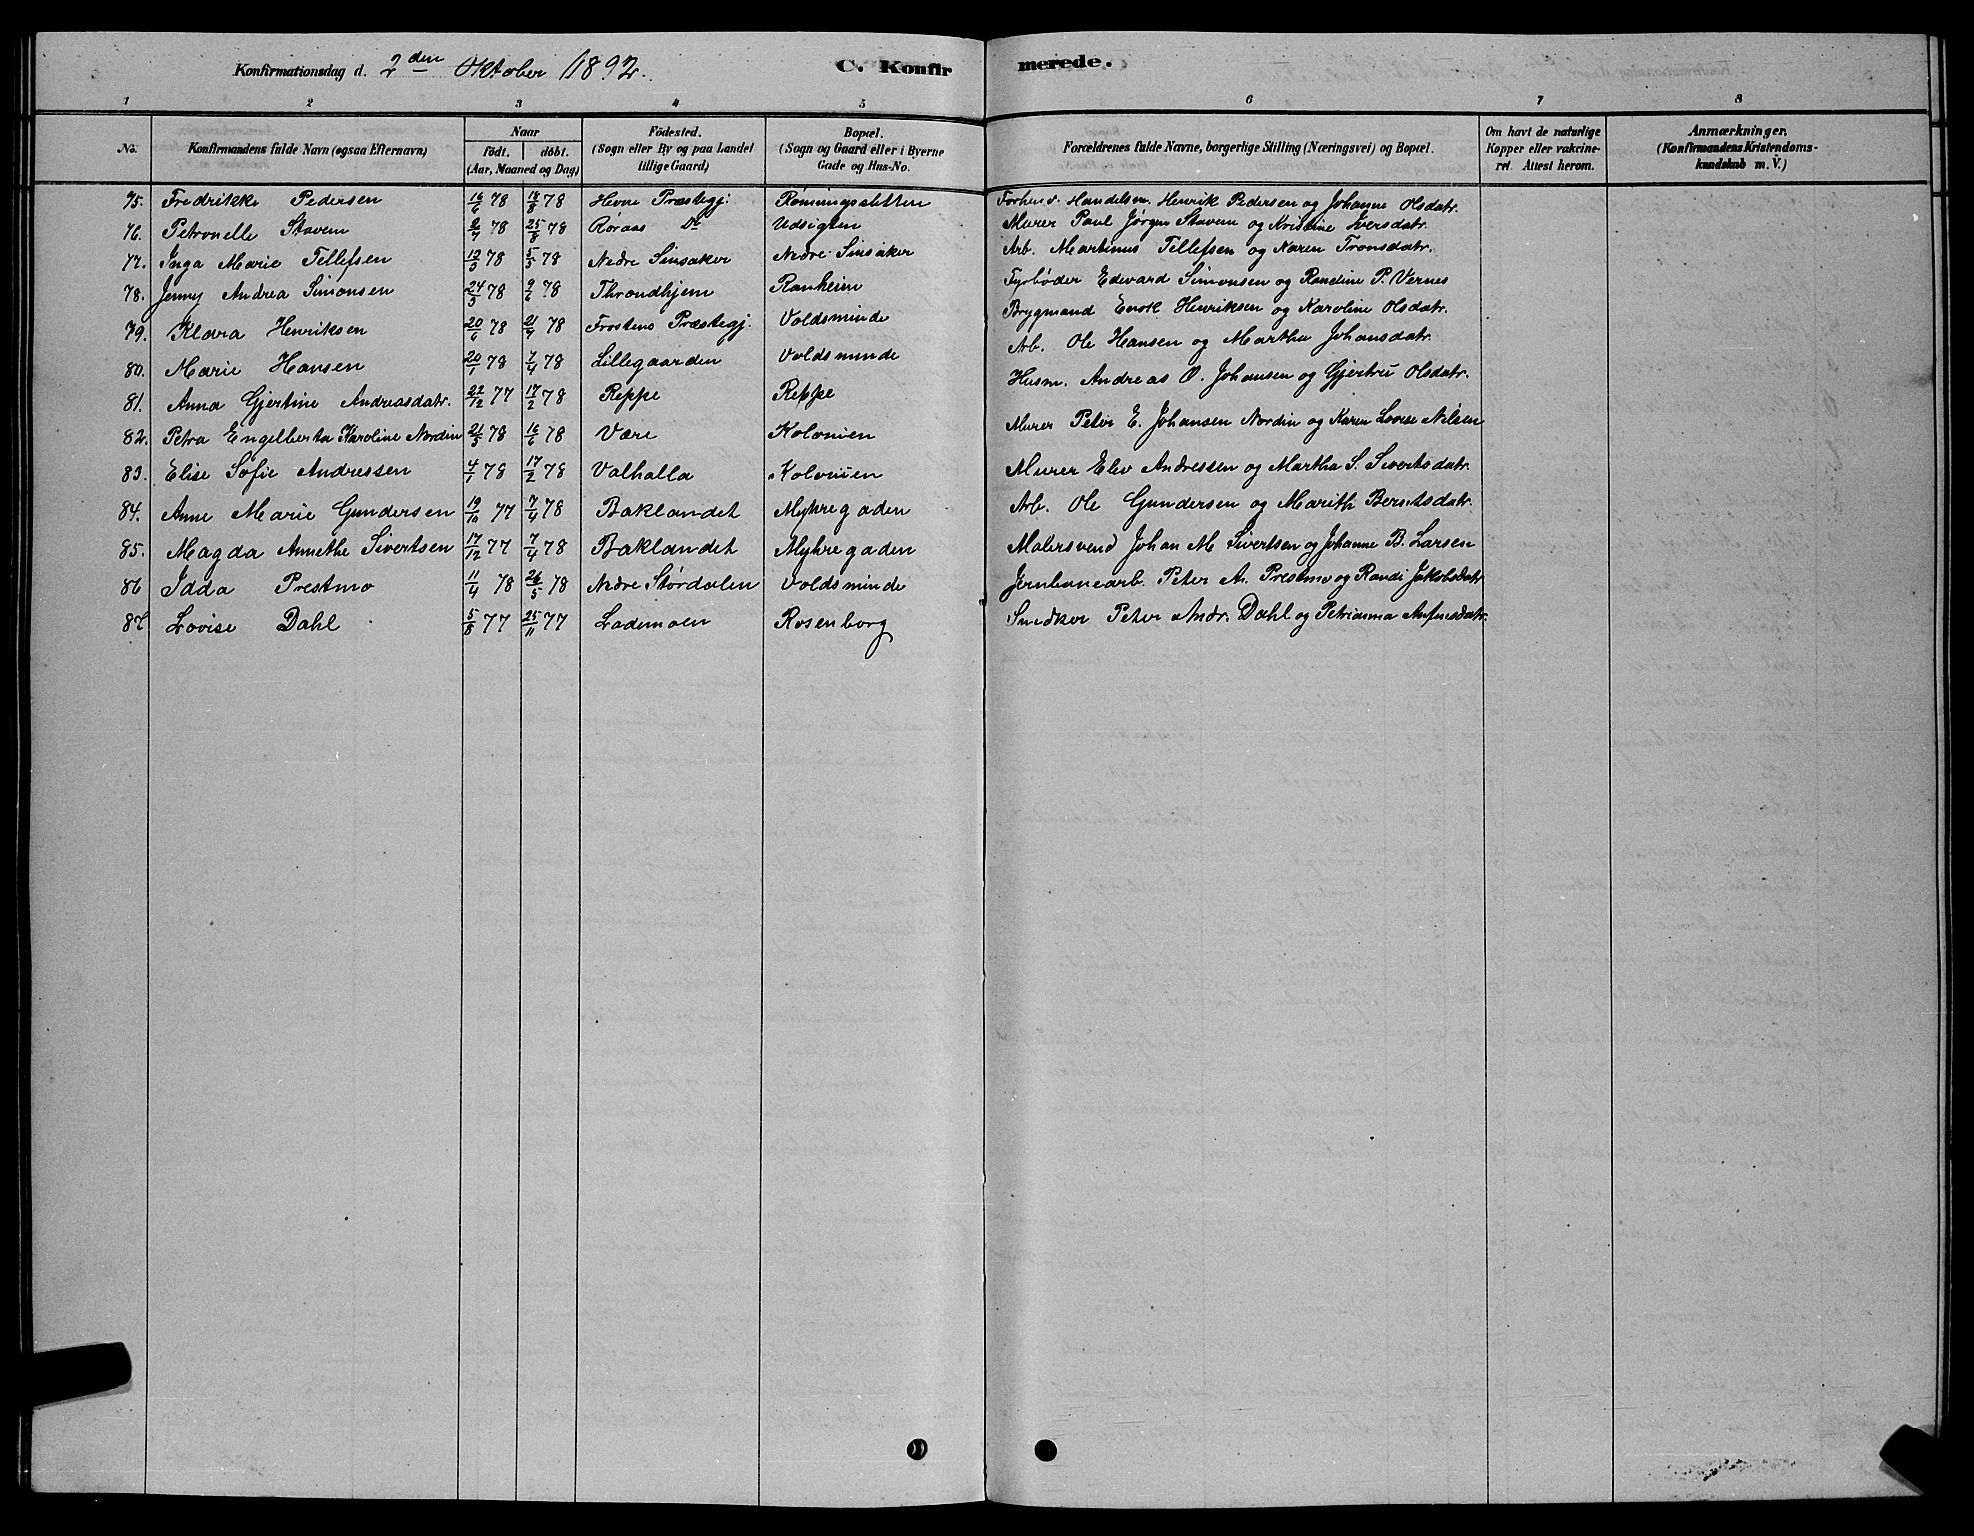 Konfirmationsdag d. 2den Oktober 1892. C. Konfirmerede.
1 2 3 4 5 6 7 8
No. Konfirmandens fulde Navn (ogsaa Efternavn) Naar født. døbt. (Aar, Maaned og Dag) Fødested. (Sogn eller By og paa Landet tillige Gaard) Bopæl. (Sogn og Gaard eller i Byerne Gade og Hus-No. Forældrenes fulde Navne, borgerlige Stilling (Næringsvei) og Bopæl. Om havt de naturlige Kopper eller vakcineret. Attest herom. Anmærkninger. (Konfirmandens Kristendomskundskab m. V.)
75. Fredrikke Pedersen 16/6 78 18/8 78 Hevne Præstegj: Rønningsletten Forhenv. Handelsm. Henrik Pedersen og Johanne Olsdatr.
76. Petronelle Stavem 2/7 78 25/8 78 Røraas Do Udsigten Murer Paul Jørgen Stavem og Kristine Iversdatr.
77. Inga Marie Tellefsen 12/3 78 5/5 78 Nedre Sinsaker Nedre Sinsaker Arb. Martinus Tellefsen og Karen Tronsdatr.
78. Jenny Andrea Simonsen 24/3 78 9/6 78 Throndhjem Ranheim Fyrbøder Edevard Simonsen og Randine P. Vernes
79. Klara Henriksen 20/6 78 21/7 78 Frostens Præstegj. Voldsminde Brygmand Enok Henriksen og Karoline Olsdatr.
80. Marie Hansen 20/1 78 7/4 78 Lillegaarden Voldsminde Arb. Ole Hansen og Martha Johansdatr.
81. Anna Gjertine Andreasdatr. 22/12 77 17/2 78 Reppe Reppe Husm. Andreas O. Johansen og Gjertru Olsdatr.
82. Petra Engelberta Karoline Nordin 21/3 78 16/6 78 Være Kolonien Murer Peter E. Johansen Nordin og Karen Lovise Nilsen
83. Elise Sofie Andressen 4/1 78 17/2 78 Valhalla Kolonien Murer Elev Andressen og Martha S. Sivertsdatr.
84. Anne Marie Gundersen 19/10 77 7/4 78 Baklandet Myhregaden Arb. Ole Gundersen og Marith Berntsdatr.
85. Magda Annethe Sivertsen 17/12 77 7/4 78 Baklandet Myhregaden Malersvend Johan M Sivertsen og Johanne B. Larsen
86 Idda Prestmo 11/4 78 26/5 78 Nedre Størdalen Voldsminde Jernbanearb. Peter A. Prestmo og Randi Jakobsdatr
87. Lovise Dahl 5/8 77 25/11 77 Lademoen Rosenborg Snedker Peter Andr. Dahl og Petrianna Anfinsdatr.